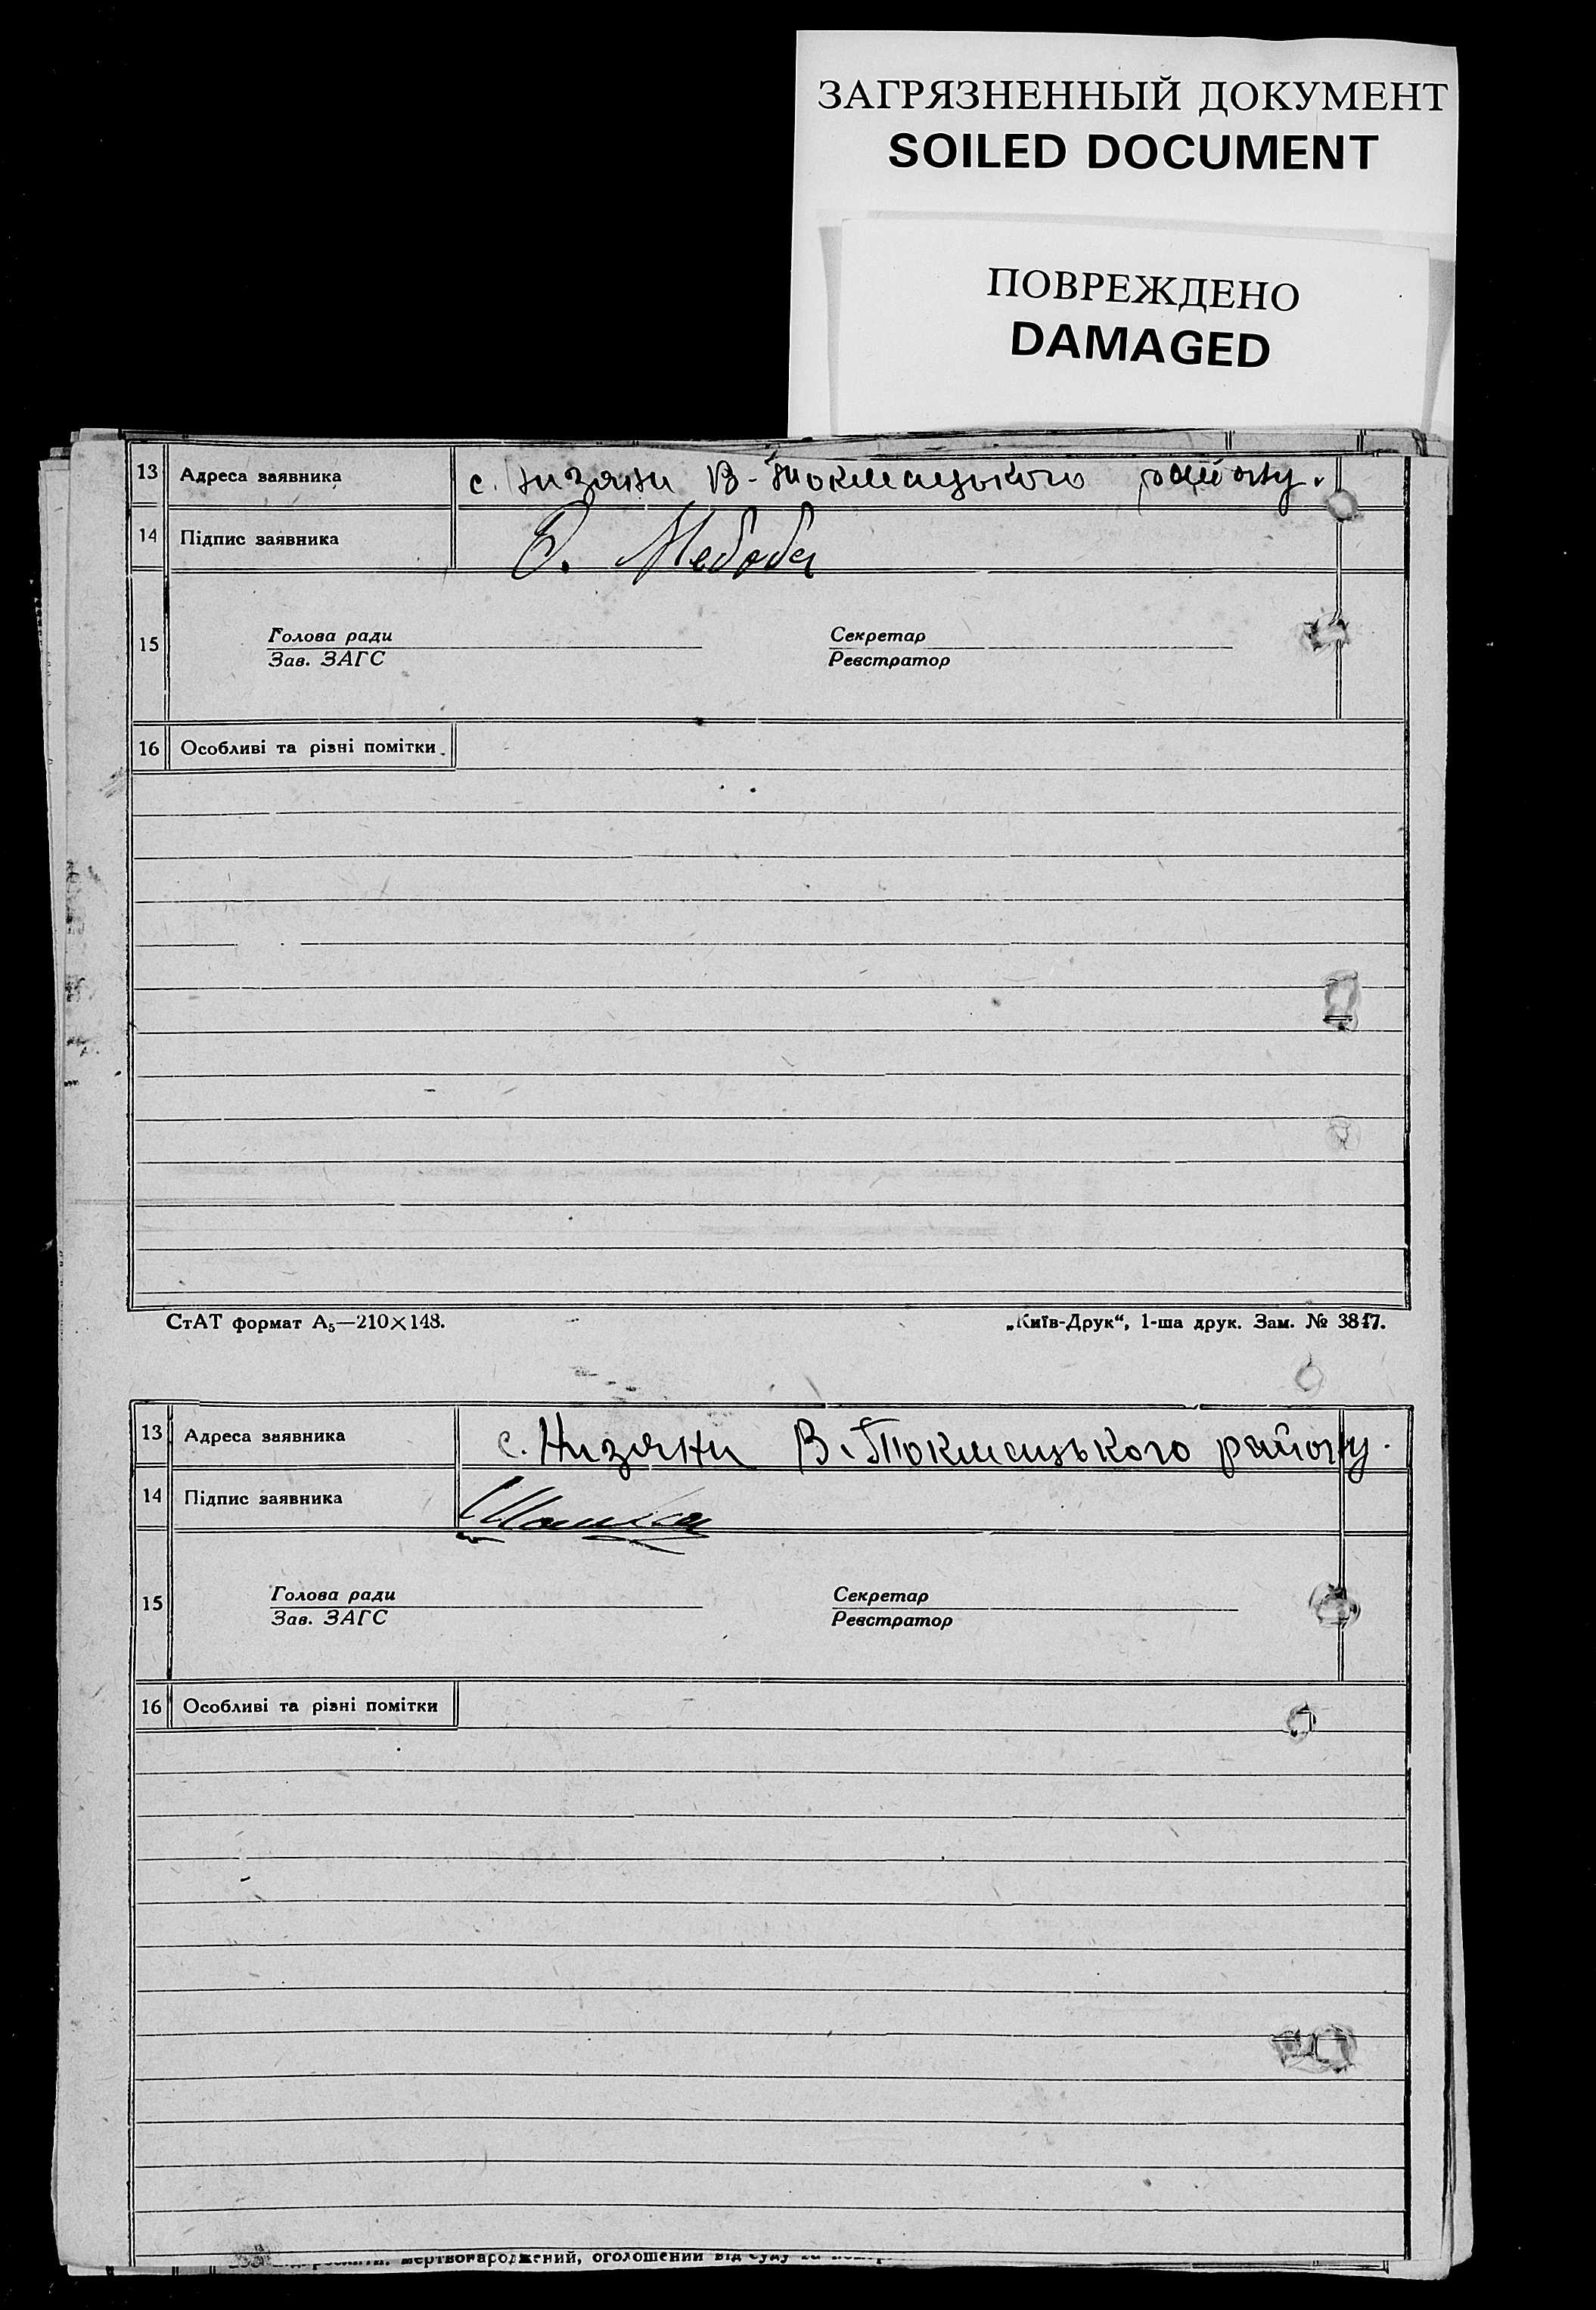 ЗАГРЯЗНЕННЫЙ ДОКУМЕНТ
SOILED DOCUMENT
ПОВРЕЖДЕНО
DAMAGED
13 Адреса заявника с. Низяни В-Токмацького району.
14 Підпис заявника
15 Голова ради Секретар
Зав. ЗАГС Реєстратор
16 Особливі та різні помітки
СтАТ формат А₅—210×148. „Київ-Друк“, 1-ша друк. Зам. № 3847.
13 Адреса заявника с. Низяни В. Токмацького району.
14 Підпис заявника
15 Голова ради Секретар
Зав. ЗАГС Реєстратор
16 Особливі та різні помітки
мертвонароджений, оголошений від суду